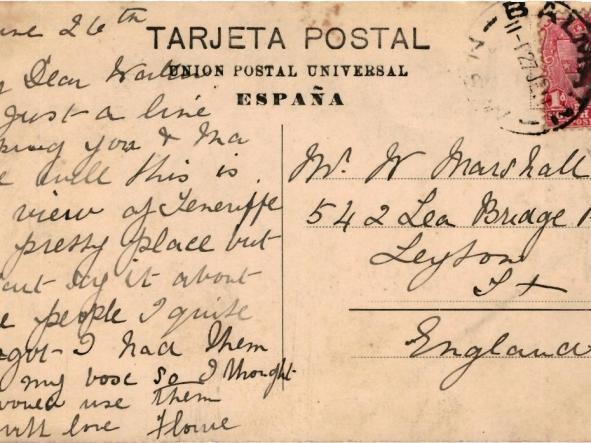 une 26th
Dear Walter
Just a line
ping you & Ma
e well this is
view of Teneriffe
pretty place but
it about
e people I quite
got - I had them
my boxe so I thought
would use them
with love Flowe
TARJETA POSTAL
UNION POSTAL UNIVERSAL
ESPAÑA
Mr. W Marshall
542 Lea Bridge R
Leyton
England